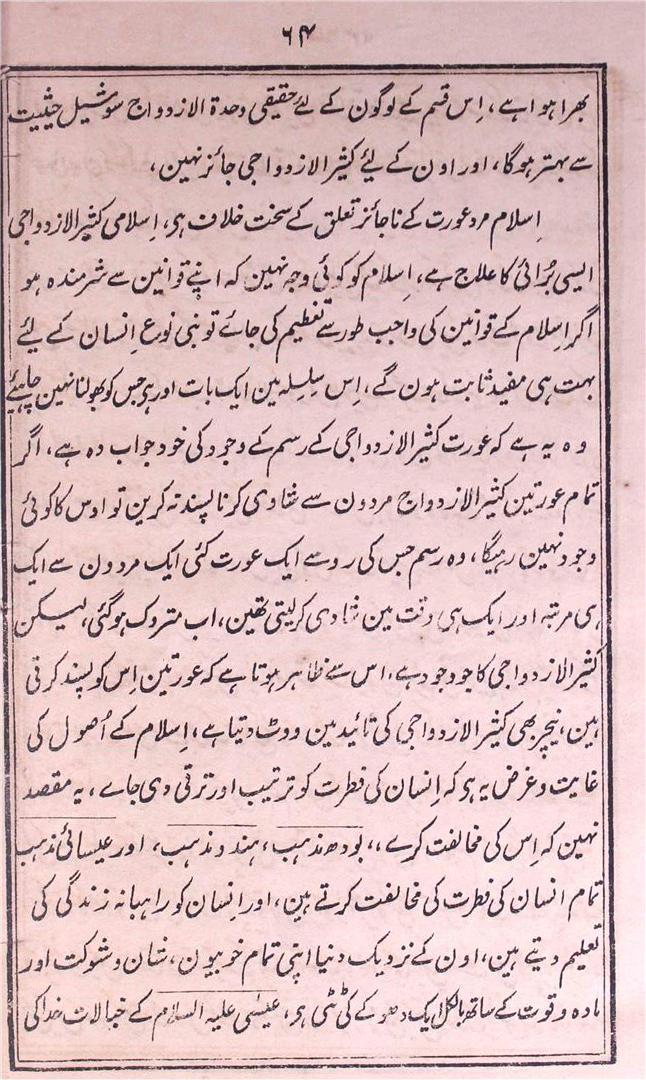 ۶۴
بھرا ہوا ہے، اِس قسم کے لوگون کے لئے حقیقی وحدۃ الازدواج سوشیل حیثیت
سے بہتر ہوگا، اور اون کے لیئے کثیرالازدواجی جائز نہین،
اِسلام مرد عورت کے ناجائز تعلق کے سخت خلاف ہی، اِسلامی کثیرالازدواجی
ایسی بُرائی کا علاج ہے، اِسلام کو کوئی وجہ نہین کہ اپنے قوانین سے شرمندہ ہو
اگر اِسلام کے قوانین کی واجب طور سے تعظیم کی جائے تو بنی نوع اِنسان کے لیئے
بہت ہی مفید ثابت ہون گے، اِس سِلسِلہ مین ایک بات اور ہی جس کو بھولنا نہین چاہیئے
وہ یہ ہے کہ عورت کثیرالازدواجی کے رسم کے وجود کی خود جواب دہ ہے، اگر
تمام عورتین کثیرالازدواج مردون سے شادی کرنا پسند نہ کرین تو اوس کا کوئی
وجود نہین رہیگا، وہ رسم جس کی رو سے ایک عورت کئی ایک مردون سے ایک
ہی مرتبہ اور ایک ہی وقت مین شادی کرلیتی تھین، اب متروک ہوگئی، لیکن
کثیرالازدواجی کا جو وجود ہے، اس سے ظاہر ہوتا ہے کہ عورتین اِس کو پسند کرتی
ہین، نیچر بھی کثیرالازدواجی کی تائید مین ووٹ دیتا ہے، اِسلام کے اُصول کی
غایت و غرض یہ ہی کہ اِنسان کی فطرت کو ترتیب اور ترقی دی جاے، یہ مقصد
نہین کہ اِس کی مخالفت کرے،، بودھ مذہب، ہندو مذہب، اور عیسائی مذہب
تمام انسان کی فطرت کی مخالفت کرتے ہین، اور اِنسان کو راہبانہ زندگی کی
تعلیم دیتے ہین، اون کے نزدیک دنیا اپنی تمام خوبیون، شان و شوکت اور
مادہ و قوت کے ساتھ بالکل ایک دھوکے کی ٹٹی ہی، عیسٰی علیہ السلام کے خیالات خدا کی